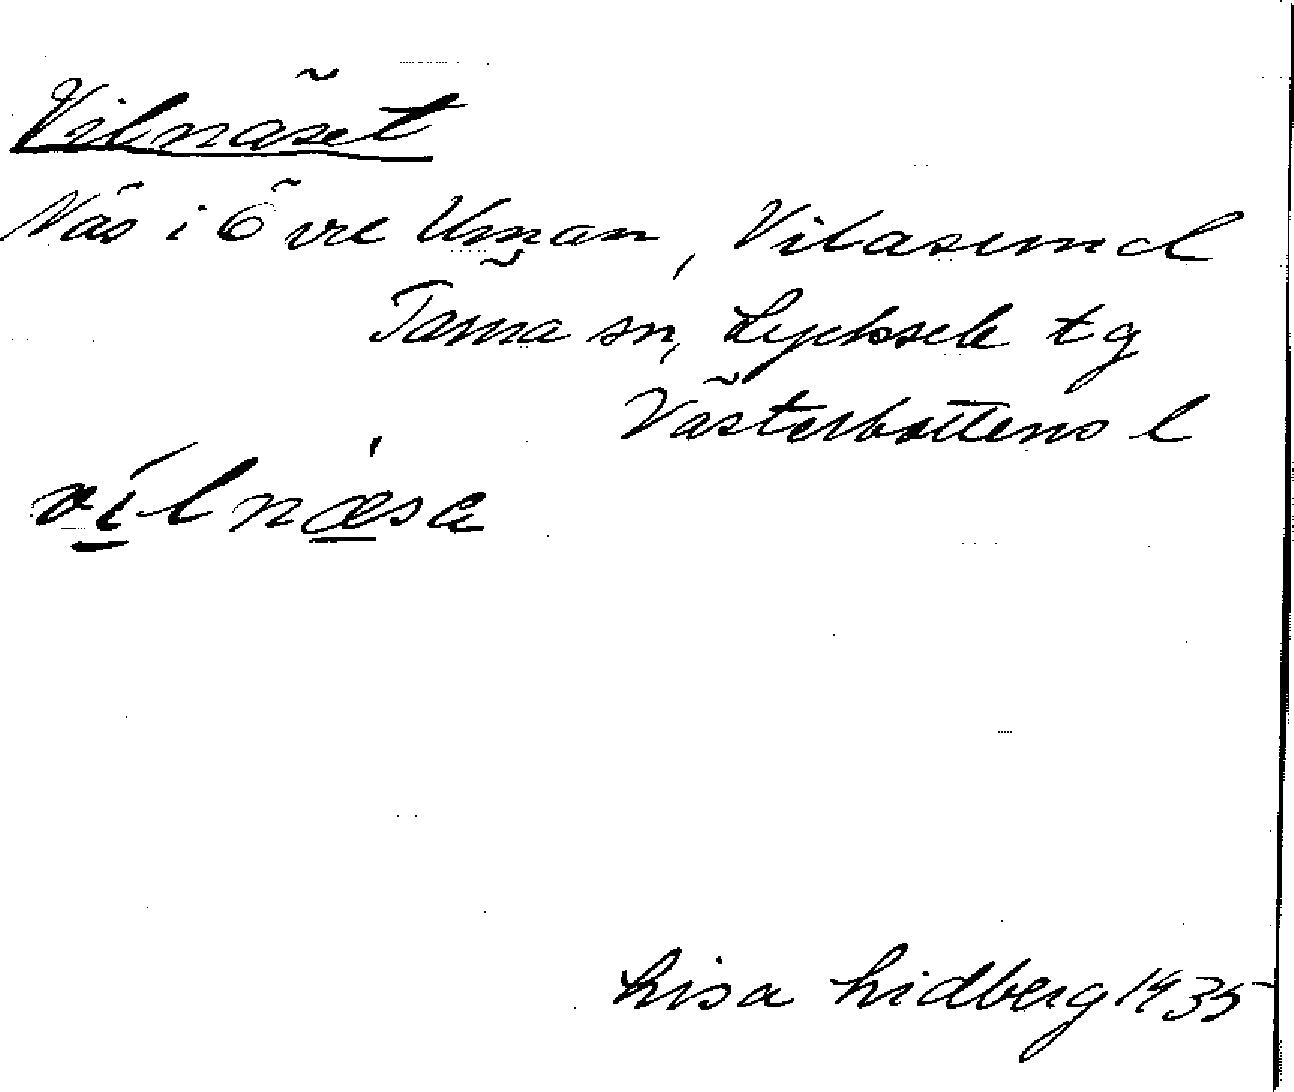 Vilnäset
Näs i Övre Uman, Vilasund
Tärna sn, Lycksele tg
Västerbottens l
vilnæsa
Lisa Lidberg 1935